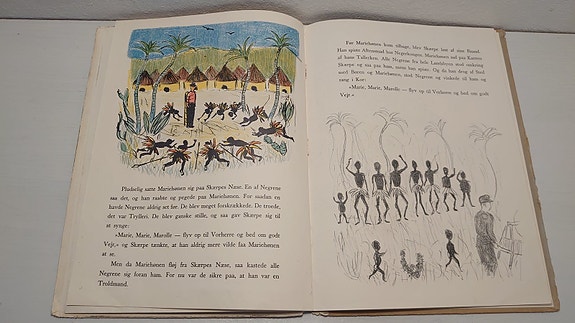 Pludselig satte Mariehønen sig paa Skærpes Næse. En af Negrene
saa det, og han raabte og pegede paa Mariehønen. For saadan en
havde Negrene aldrig set før. De blev meget forskrækkede. De troede,
det var Trylleri. De blev ganske stille, og saa gav Skærpe sig til
at synge:
»Marie, Marie, Marolle — flyv op til Vorherre og bed om godt
Vejr,« og Skærpe tænkte, at han aldrig mere vilde faa Mariehønen
at se.
Men da Mariehønen fløj fra Skærpes Næse, saa kastede alle
Negrene sig foran ham. For nu var de sikre paa, at han var en
Troldmand.
Før Mariehønen kom tilbage, blev Skærpe løst af sine Baand.
Han spiste Aftensmad hos Negerkongen. Mariehønen sad paa Kanten
af hans Tallerken. Alle Negrene fra hele Landsbyen stod omkring
Skærpe og saa paa ham, mens han spiste. Og da han drog af Sted
med Bjørn og Mariehønen, stod Negrene og vinkede til ham og
sang i Kor:
»Marie, Marie, Marolle — flyv op til Vorherre og bed om godt
Vejr.«